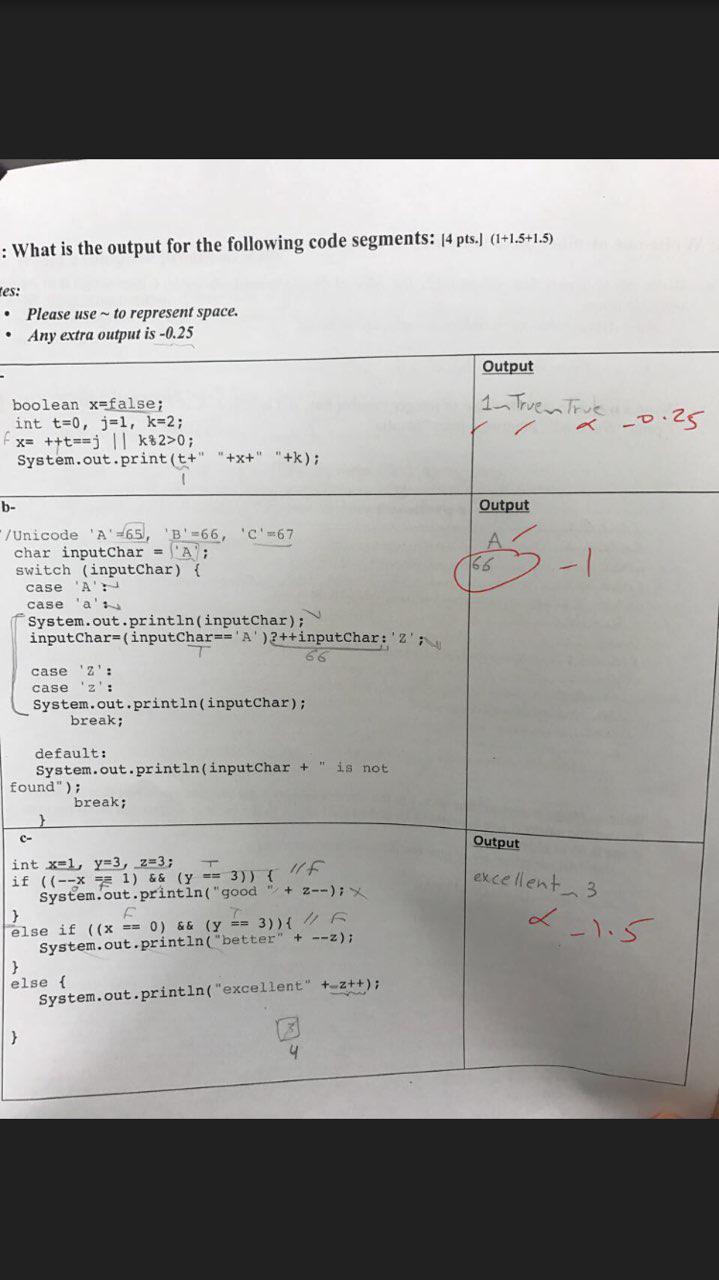 : What is the output for the following code segments: [4 pts.] (1+1.5+1.5)
tes:
• Please use ~ to represent space.
• Any extra output is -0.25
Output
boolean x=false;
int t=0, j=1, k=2;
x= ++t==j || k%2>0;
System.out.print(t+" "+x+" "+k);
1
1~True~True
-0.25
b-
Output
//Unicode 'A'=65, 'B'=66, 'C'=67
char inputChar = 'A';
switch (inputChar) {
case 'A':
case 'a':
System.out.println(inputChar);
inputChar=(inputChar=='A')?++inputChar:'Z';
T 66
case 'Z':
case 'z':
System.out.println(inputChar);
break;
default:
System.out.println(inputChar + " is not
found");
break;
}
A
66
-1
c-
Output
int x=1, y=3, z=3;
T
if ((--x == 1) && (y == 3)) { //F
System.out.println("good " + z--); X
}
F T
else if ((x == 0) && (y == 3)){ // F
System.out.println("better" + --z);
}
else {
System.out.println("excellent" + z++);
3
4
}
excellent~3
-1.5